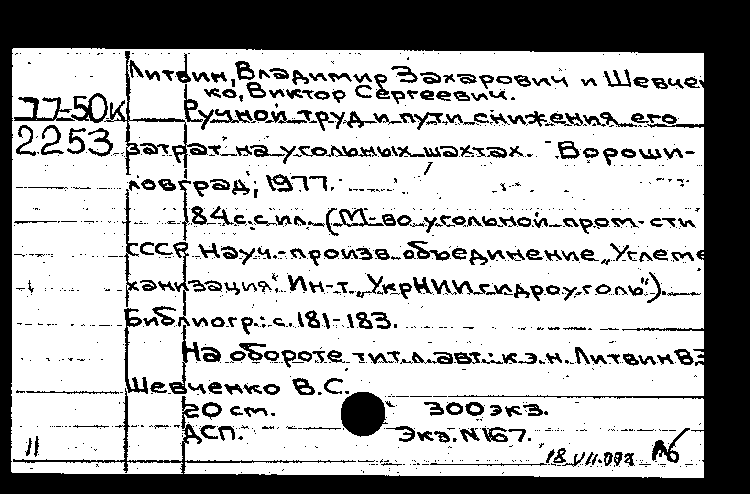 Литвин, Владимир Захарович и Шевчен
ко, Виктор Сергеевич.
77-50к Ручной труд и пути снижения его
2253 затрат на угольных шахтах. Вороши-
ловград, 1977.
184 с. с ил. (М-во угольной пром-сти
СССР Науч.-произв. объединение „Углеме
ханизация". Ин-т „УкрНИИгидроуголь").
Библиогр.: с. 181-183.
На обороте тит. л. авт.: к.э.н. Литвин В.З
Шевченко В.С.
20 см. 300 экз.
ДСП. Экз. N167.
11 18 VII